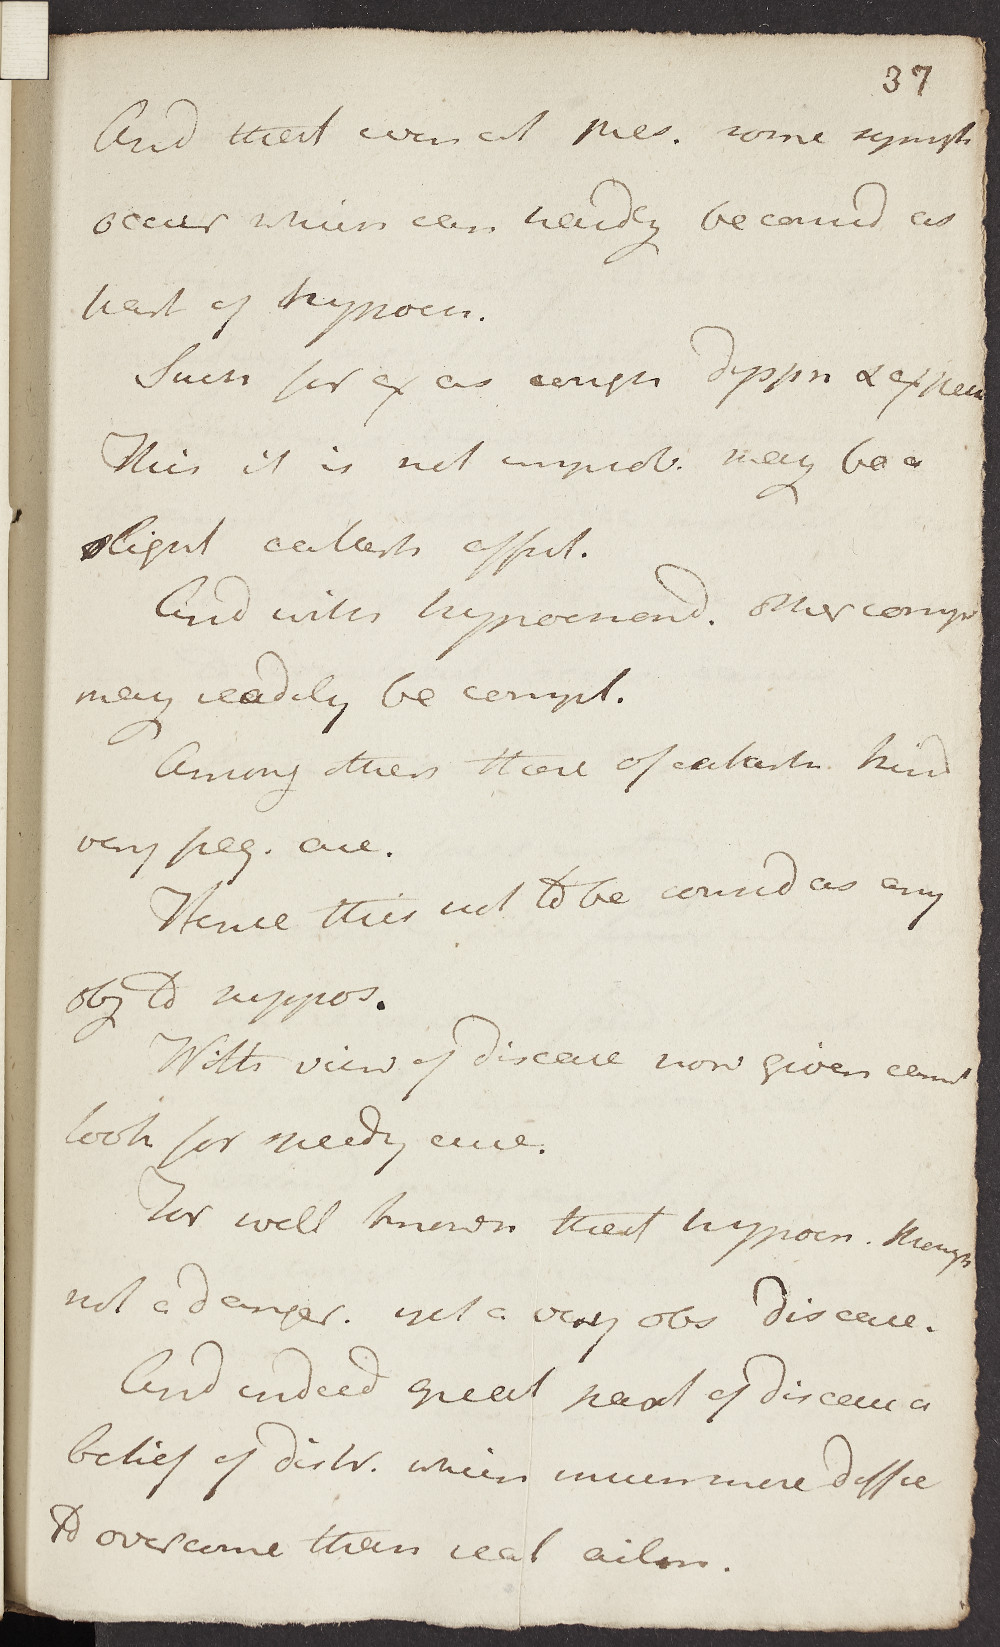 37
And that even at pres. some sympt
occur which can hardly be consid as
part of hypocn.
Such for ex as cough dyspn & expect
This it is not improb. may be a
slight catarrh affect.
And with hypochond. other comp
may readily be compl.
Among others those of catarrh kind
very freq. are.
Hence this not to be consid as any
obj to suppos.
With view of disease now given cannot
look for speedy cure.
For well known that hypocn. though
not a danger. yet a very obs disease.
And indeed great part of disease a
belief of distr. which much more diffic
to overcome than real ailm.